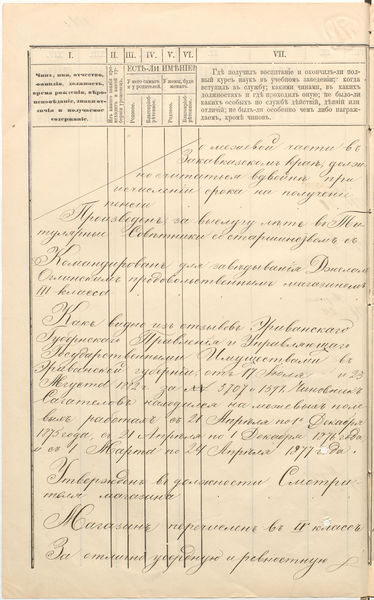 I.
II.
III.
IV.
V.
VI.
VII.
ЕСТЬ-ЛИ ИМѢНІЕ
Чинъ, имя, отчество,
фамилія, должность,
время рожденія, вѣро-
исповѣданіе, знаки от-
личія и получаемое
содержаніе.
У него самого
и у родителей.
У жены, буде
женатъ.
Родовое.
Благопріобрѣтенное.
Родовое.
Благопріобрѣтенное.
Гдѣ получилъ воспитаніе и окончилъ-ли пол-
ный курсъ наукъ въ учебномъ заведеніи; когда
вступилъ въ службу; какими чинами, въ какихъ
должностяхъ и гдѣ проходилъ оную; не было-ли
какихъ особыхъ по службѣ дѣяній или
отличій; не былъ-ли особенно чѣмъ либо награж-
даемъ, кромѣ чиновъ.
о межевой части въ
Закавказскомъ краѣ, долж-
но считаться вдвойнѣ при
исчисленіи срока на полученіе
пенсіи
Произведенъ за выслугу лѣтъ въ Ти-
тулярные Совѣтники со старшинствомъ съ
Командированъ для завѣдыванія
продовольственнымъ магазиномъ
III класса
Какъ видно изъ отзывовъ Эриванскаго
Губернскаго Правленія и Управляющаго
Государственными Имуществами въ
Эриванской губерніи, отъ 17 Іюля и 23
Августа за №№ 3707 и 1578 Чиновникъ
находился на межевыхъ поле-
выхъ работахъ съ 21 Апрѣля по 1е Декабря
1875 года, съ 21 Апрѣля по 1 Декабря 1876 года
и съ 1 Марта по 24 Апрѣля 1877 года.
Утвержденъ въ должности Смотри-
теля магазина
Магазинъ перечисленъ въ II классъ
За отлично усердную и ревностную